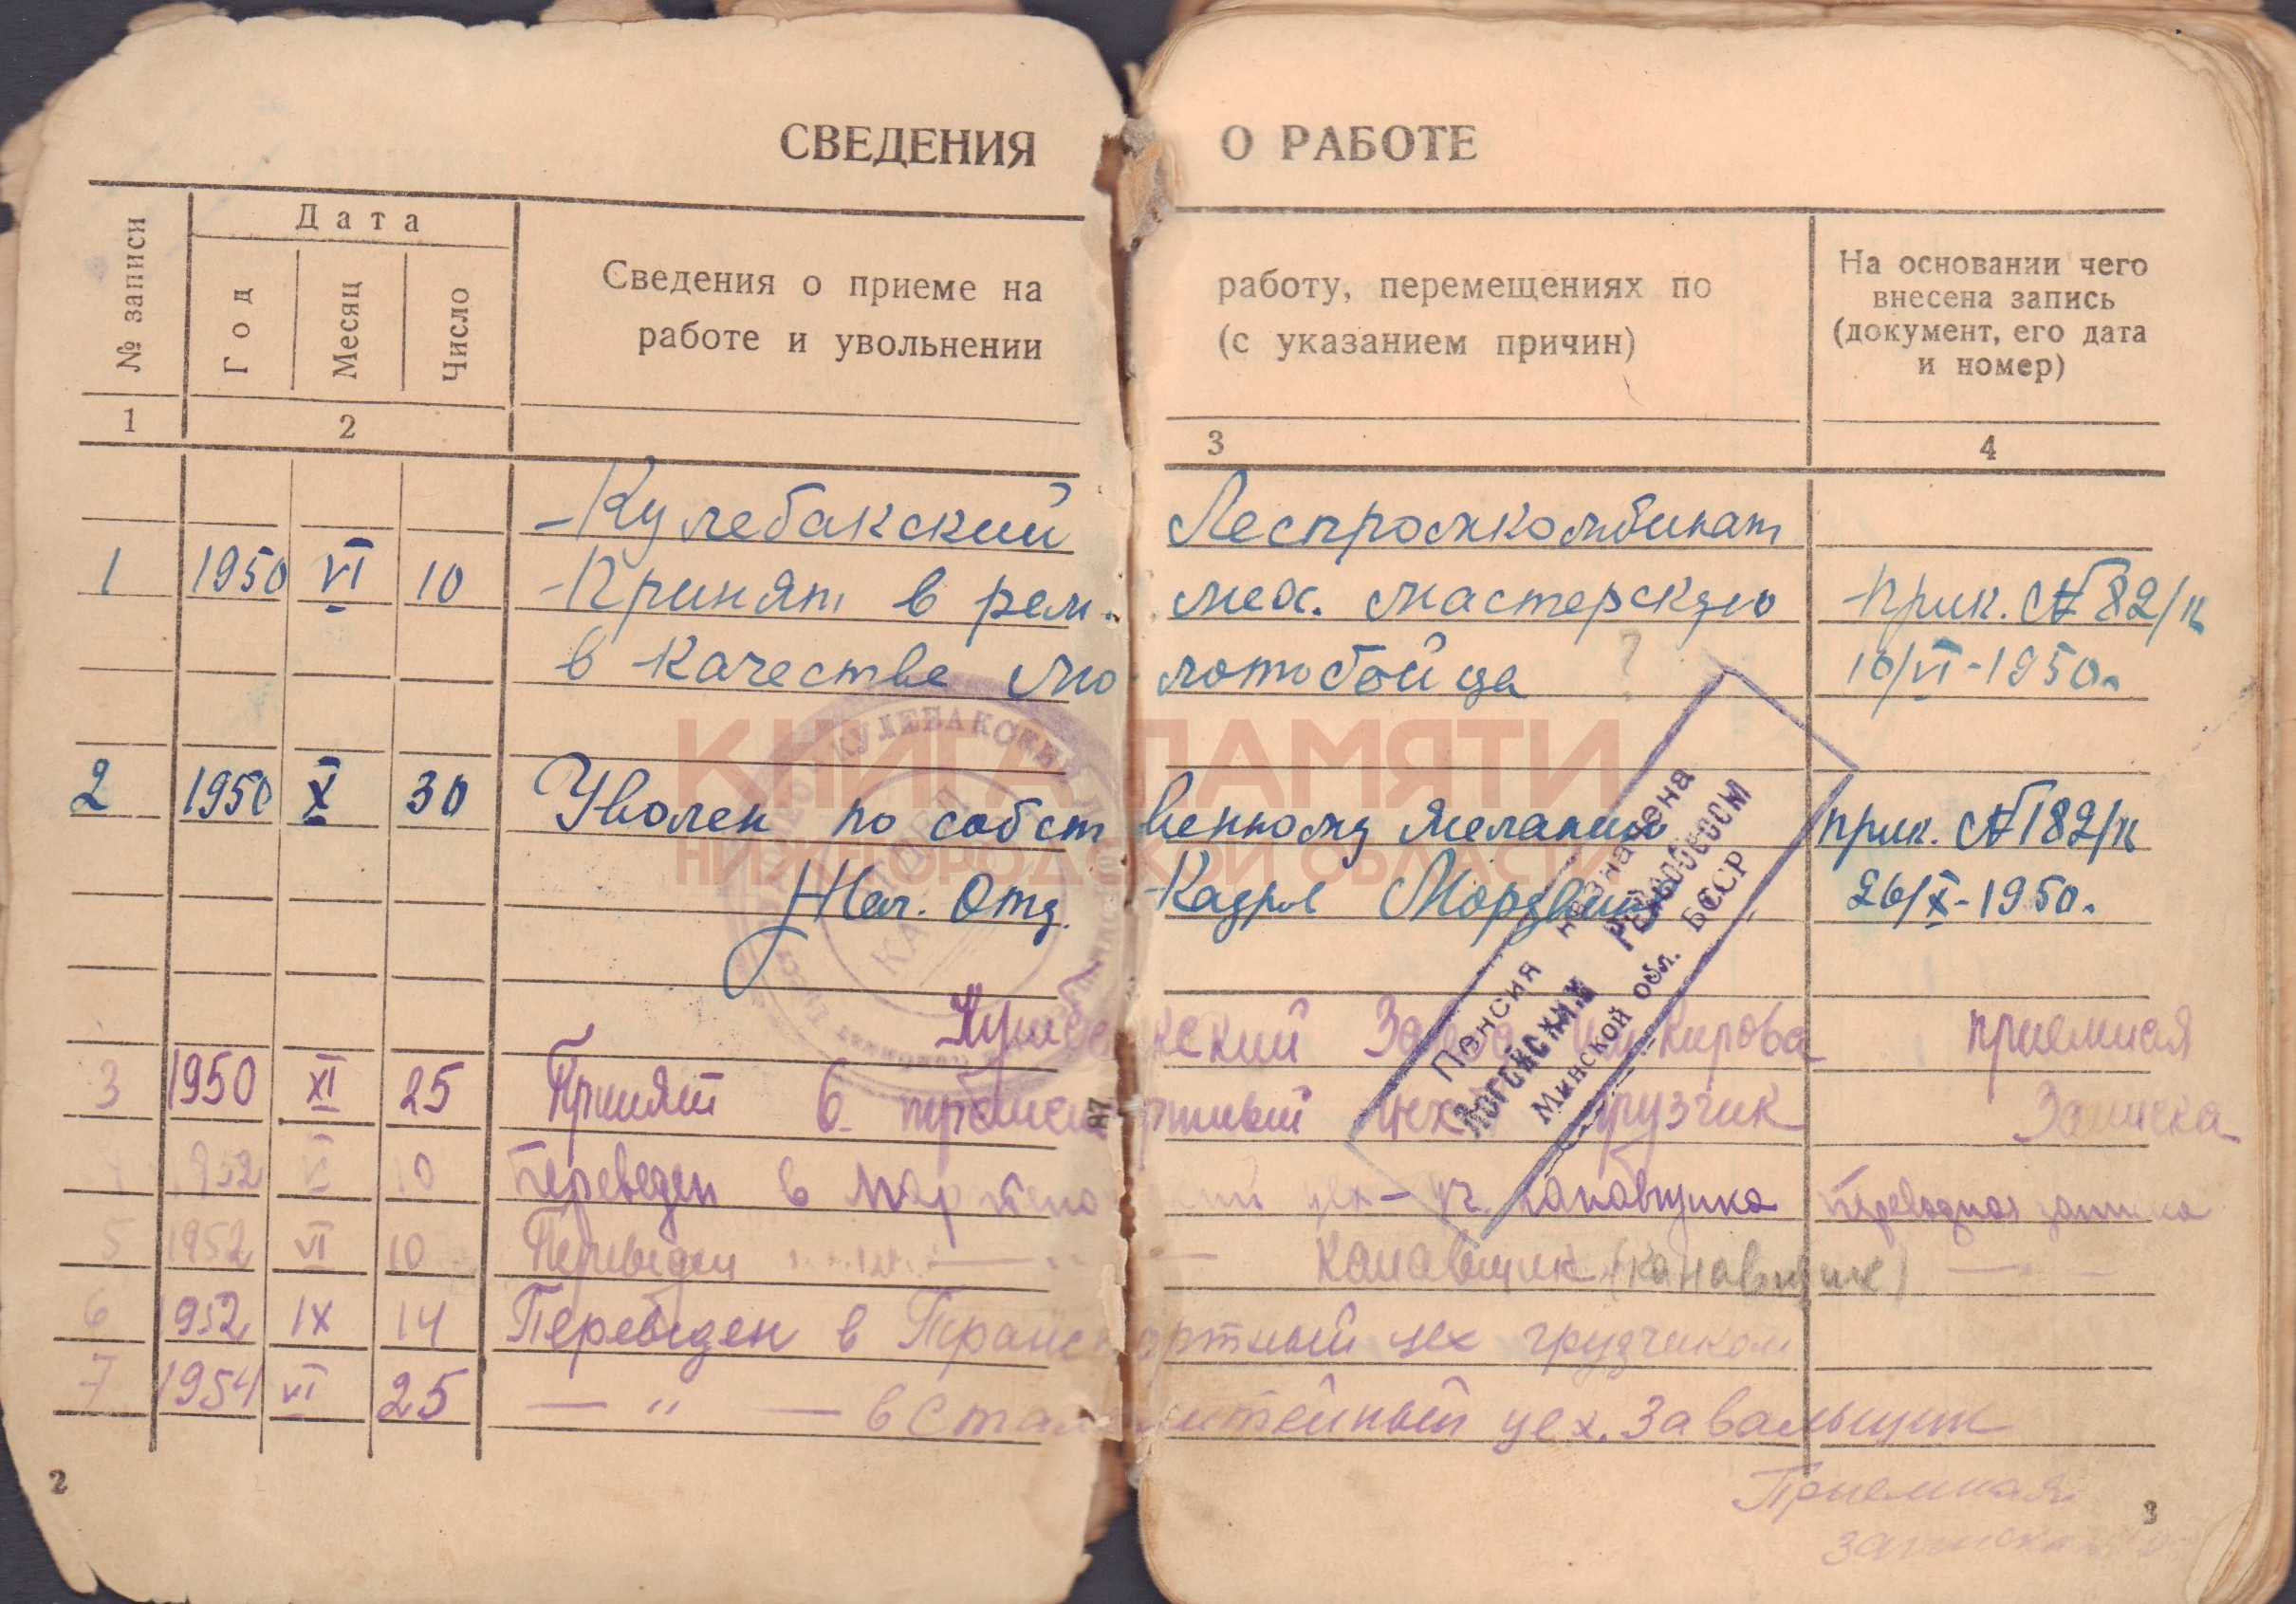 СВЕДЕНИЯ О РАБОТЕ
№ записи
Дата
Год
Месяц
Число
Сведения о приеме на работу, перемещениях по
работе и увольнении (с указанием причин)
На основании чего
внесена запись
(документ, его дата
и номер)
1 2 3 4
Кулебакский Леспромкомбинат
1 1950 VI 10 Принят в рем. мех. мастерскую Прик. №82/к
в качестве молотобойца ? 10/VI-1950г.
2 1950 X 30 Уволен по собственному желанию прик. №182/к
Нач. Отд. Кадров 26/X-1950г.
Кулебакский Завод им. Кирова приемная
3 1950 XI 25 Принят в цех грузчик Записка
1952 10 Переведен в Мартеновский цех - уч. канавщика Переводная записка
5 1952 VI 10 Переведен — канавщик (канавщик) — —
6 1952 IX 14 Переведен в Транспортный цех грузчиком
7 1954 VI 25 — " — в Сталелитейный цех. Завальщик
Приемная
записка
2
3
КУЛЕБАКСКИЙ
Пенсия назначена
Логойским Райсобесом
Минской обл. БССР
КНИГА ПАМЯТИ
НИЖЕГОРОДСКОЙ ОБЛАСТИ